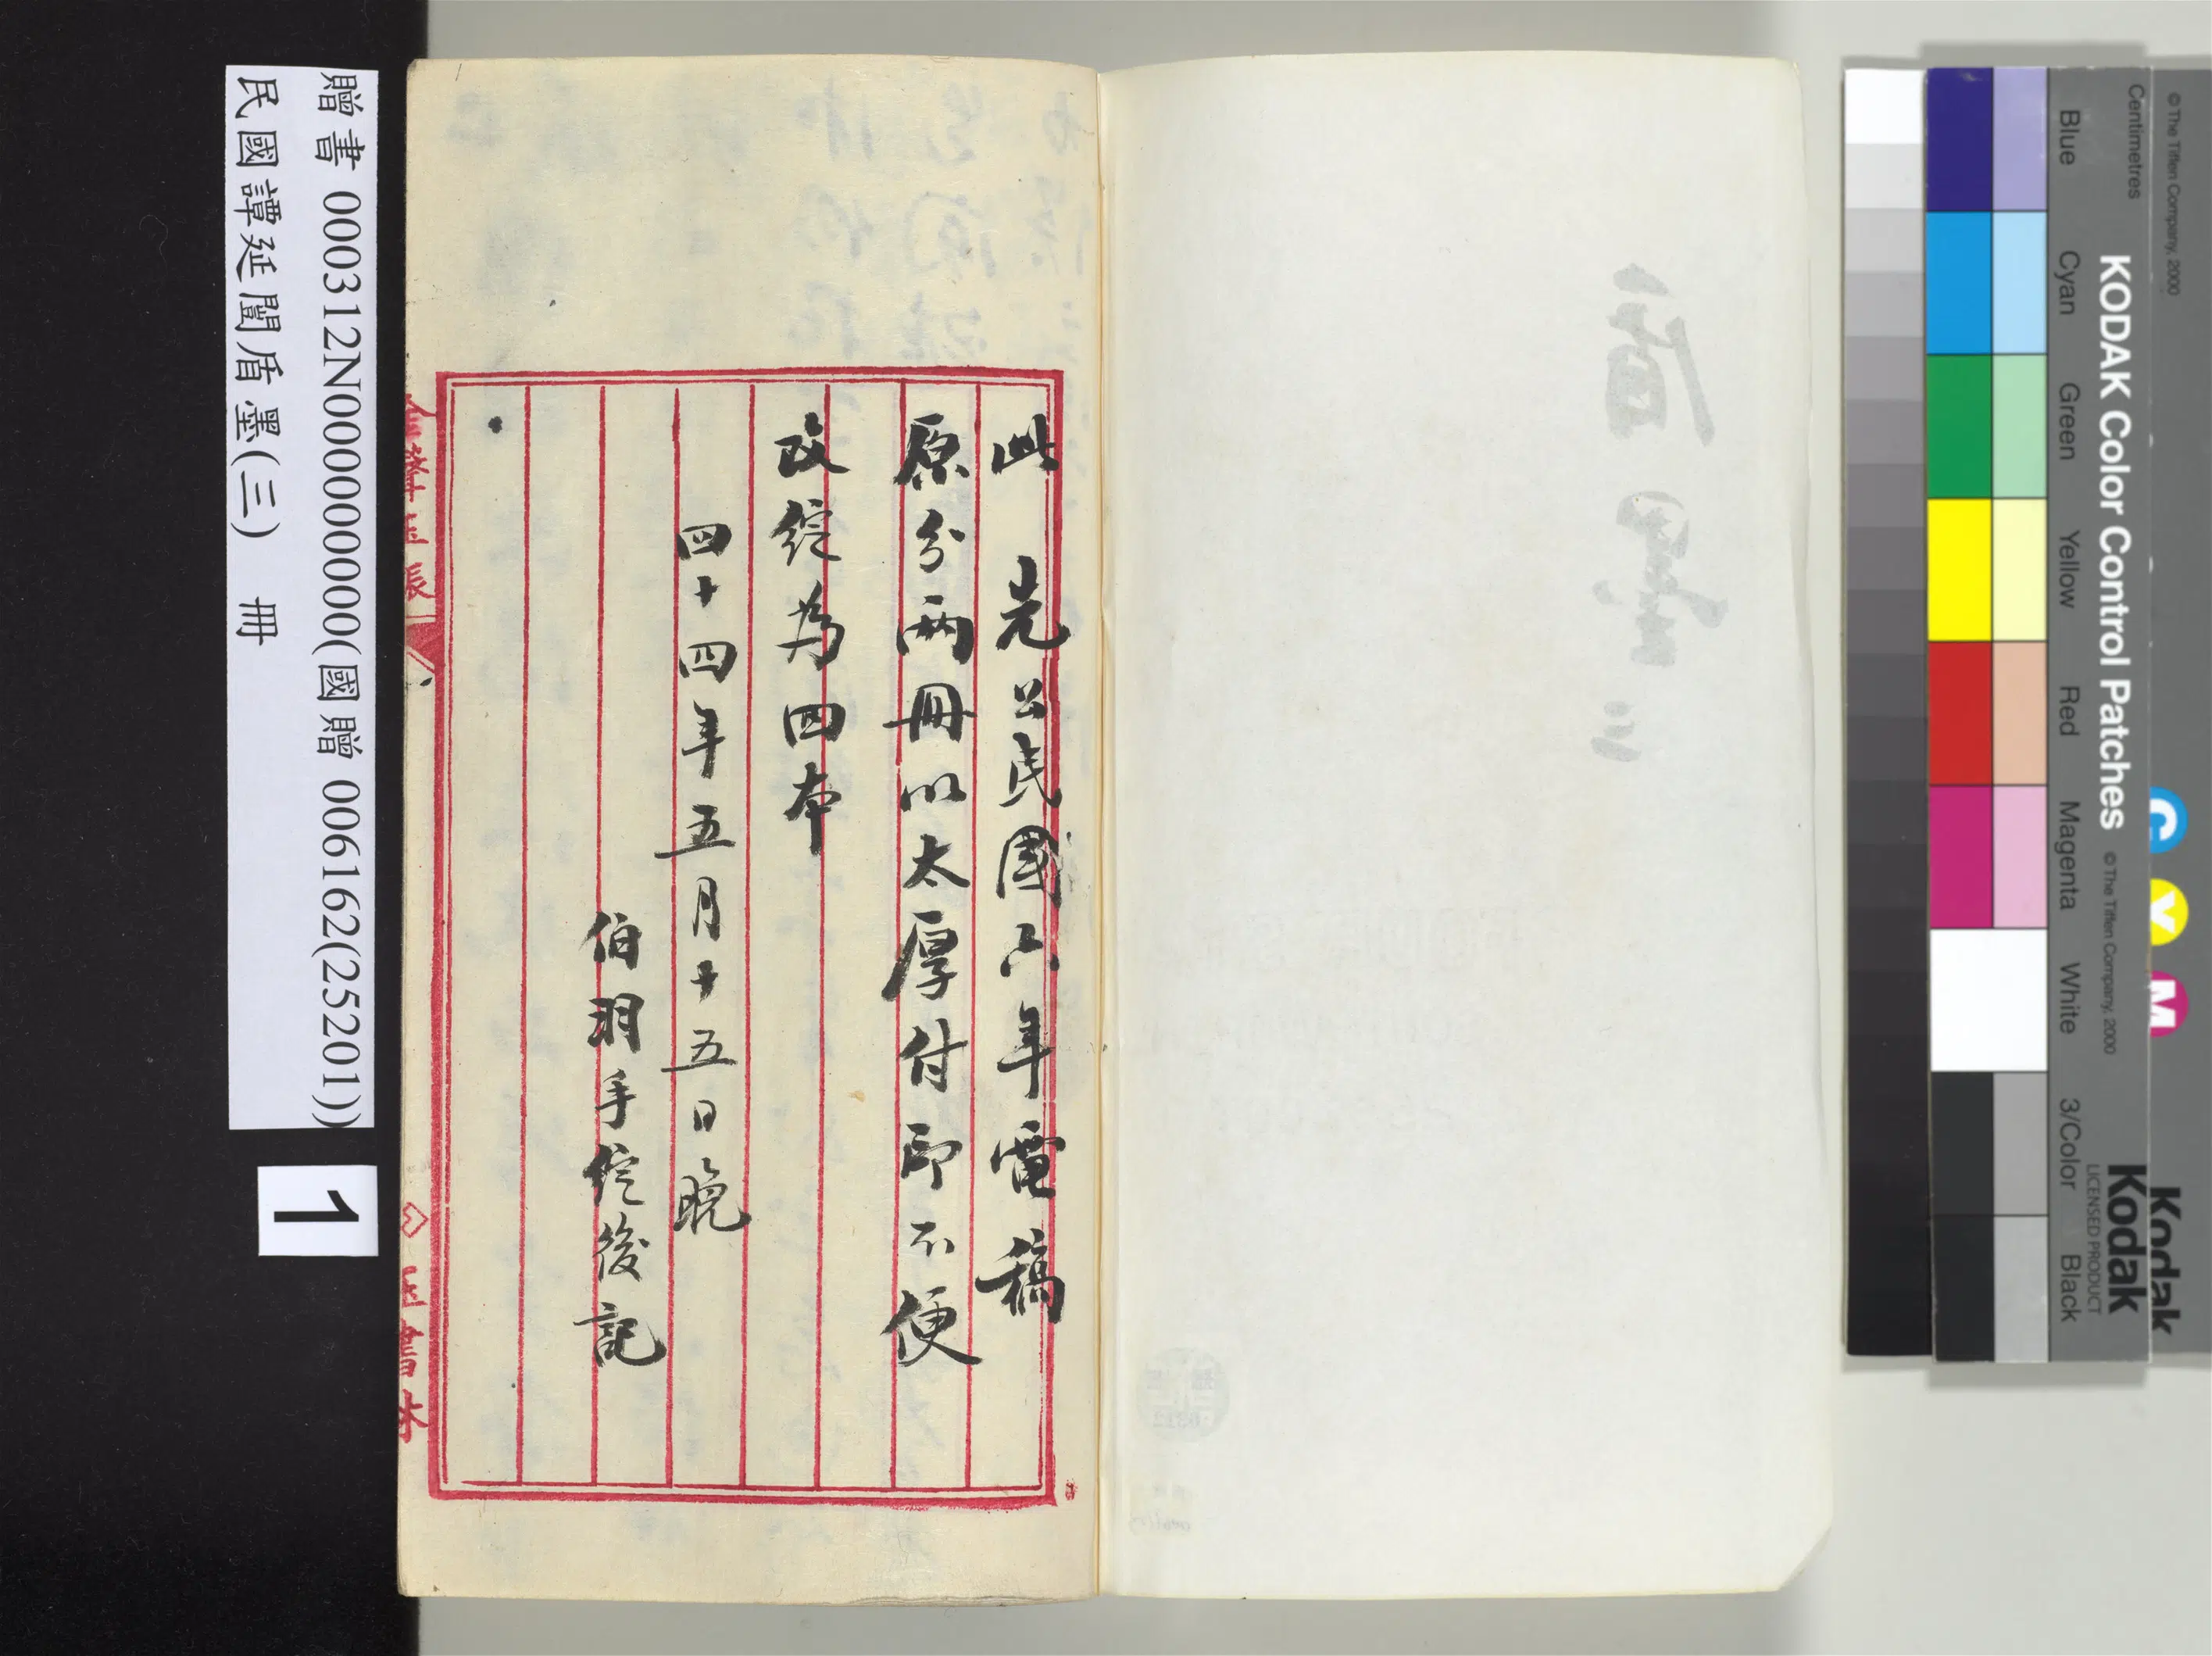 此　先公民國六年電稿
原分兩冊以太厚付印不便
改綻為四本
四十四年五月十五日晚
伯羽手綻後記
贈書 000312N000000000(國贈 006162(25201))
民國譚延闓盾墨(三) 冊
1
盾墨 三
KODAK Color Control Patches
© The Tiffen Company, 2000
Centimetres
Blue Cyan Green Yellow Red Magenta White 3/Color Black
© The Tiffen Company, 2000
Kodak
LICENSED PRODUCT
Kodak
C Y M